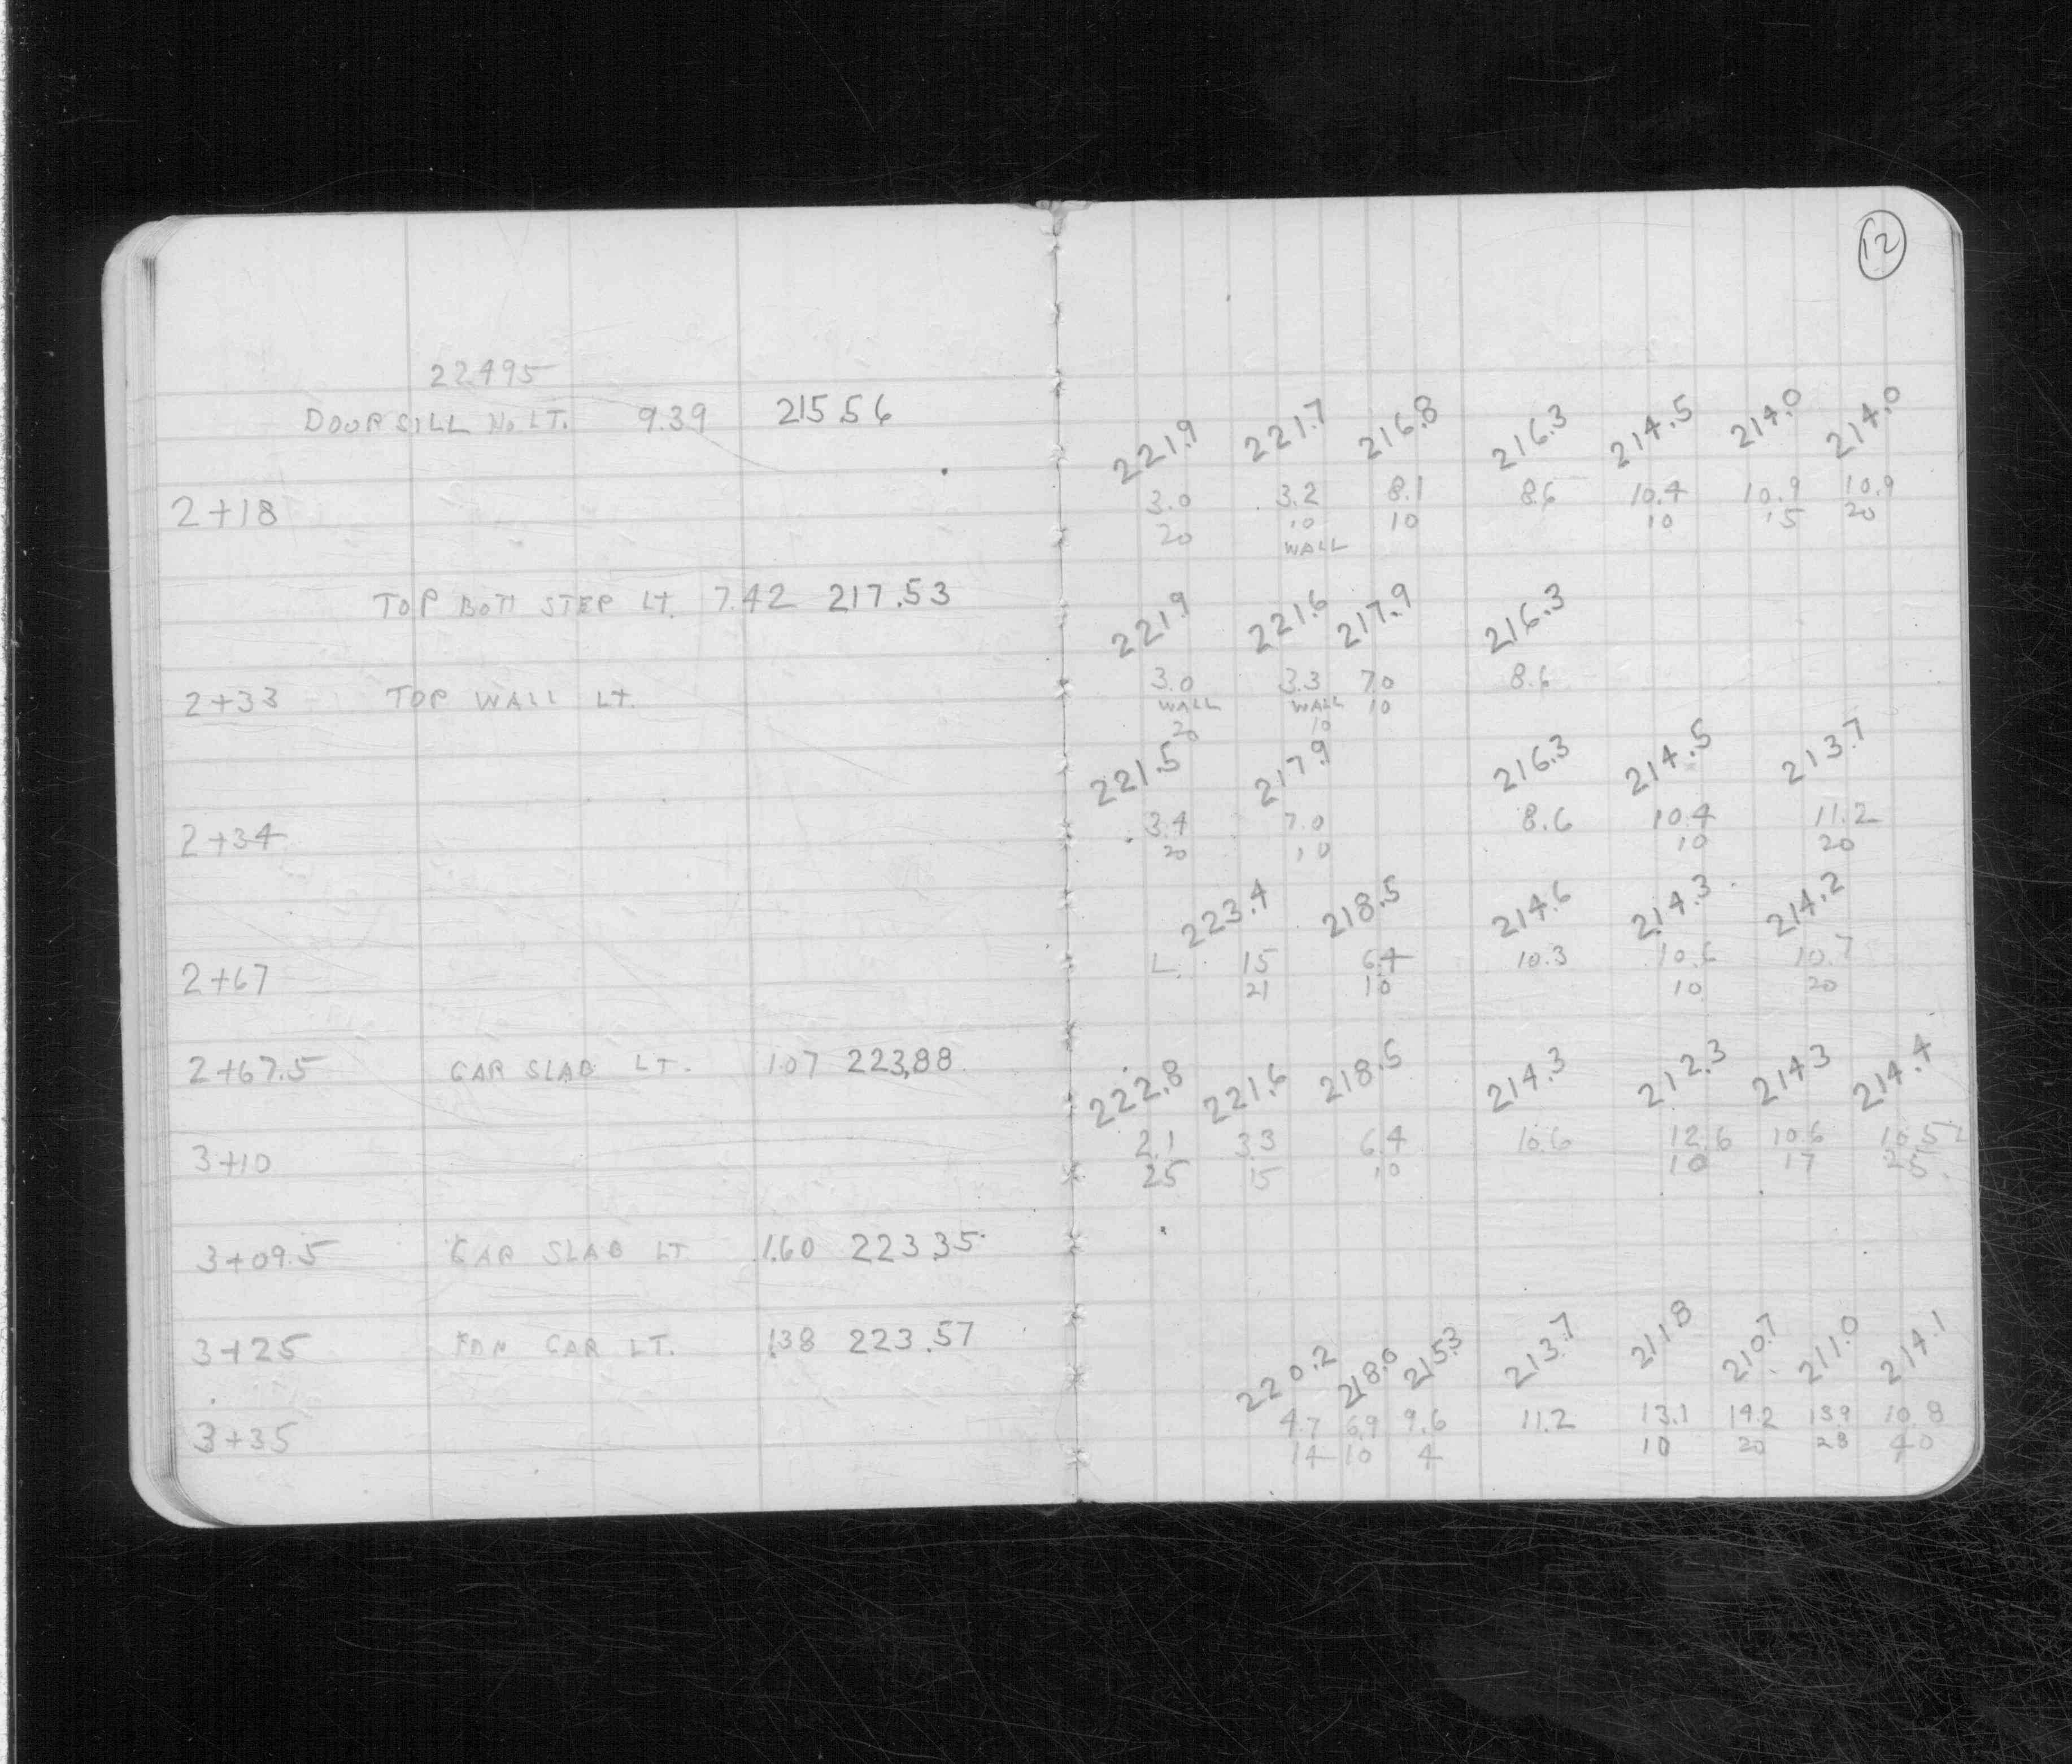 12
22495
DOOR SILL No LT. 9.39 215.56
221.9 221.7 216.8 216.3 214.5 214.0 214.0
2+18 3.0 3.2 8.1 8.6 10.4 10.9 10.9
20 10 10 10 15 20
WALL
TOP BOTT STEP LT. 7.42 217.53
221.9 221.6 217.9 216.3
2+33 TOP WALL LT. 3.0 3.3 7.0 8.6
WALL WALL 10
20 10
221.5 217.9 216.3 214.5 213.7
2+34 3.4 7.0 8.6 10.4 11.2
20 10 10 20
223.4 218.5 214.6 214.3 214.2
2+67 L. 15 6.4 10.3 10.6 10.7
21 10 10 20
2+67.5 GAR SLAB LT. 1.07 223.88
222.8 221.6 218.5 214.3 212.3 214.3 214.4
3+10 2.1 3.3 6.4 10.6 12.6 10.6 10.5
25 15 10 10 17 25
3+09.5 GAR SLAB LT 1.60 223.35
3+25 FDN GAR LT. 1.38 223.57
220.2 218.0 215.3 213.7 211.8 210.7 211.0 214.1
3+35 4.7 6.9 9.6 11.2 13.1 14.2 13.9 10.8
14 10 4 10 20 28 40